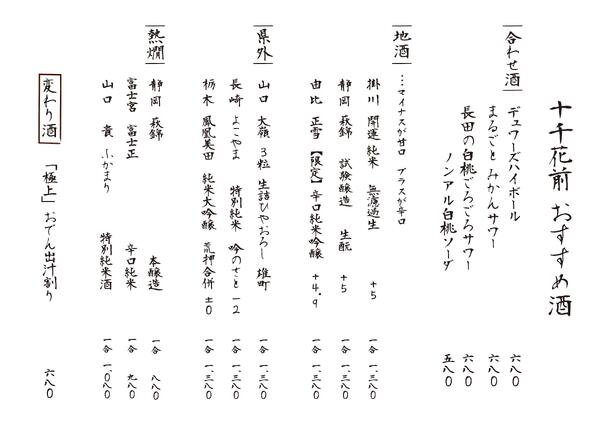 十千花前 おすすめ酒
合わせ酒
デュワーズハイボール 六八〇
まるごとみかんサワー 六八〇
長田の白桃ごろごろサワー 六八〇
ノンアル白桃ソーダ 五八〇
地酒
…マイナスが甘口 プラスが辛口
掛川 開運 純米 無濾過生 +5 一合 一、三八〇
静岡 萩錦 試験醸造 生酛 +5 一合 一、三八〇
由比 正雪 【限定】辛口純米吟醸 +4.9 一合 一、三八〇
県外
山口 大嶺 3粒 生詰ひやおろし 雄町 一合 一、三八〇
長崎 よこやま 特別純米 吟のさと -2 一合 一、三八〇
栃木 鳳凰美田 純米大吟醸 荒押合併 ±0 一合 一、三八〇
熱燗
静岡 萩錦 本醸造 一合 八八〇
富士宮 富士正 辛口純米 一合 九八〇
山口 貴 ふかまり 特別純米酒 一合 一、〇八〇
変わり酒
「極上」おでん出汁割り 六八〇